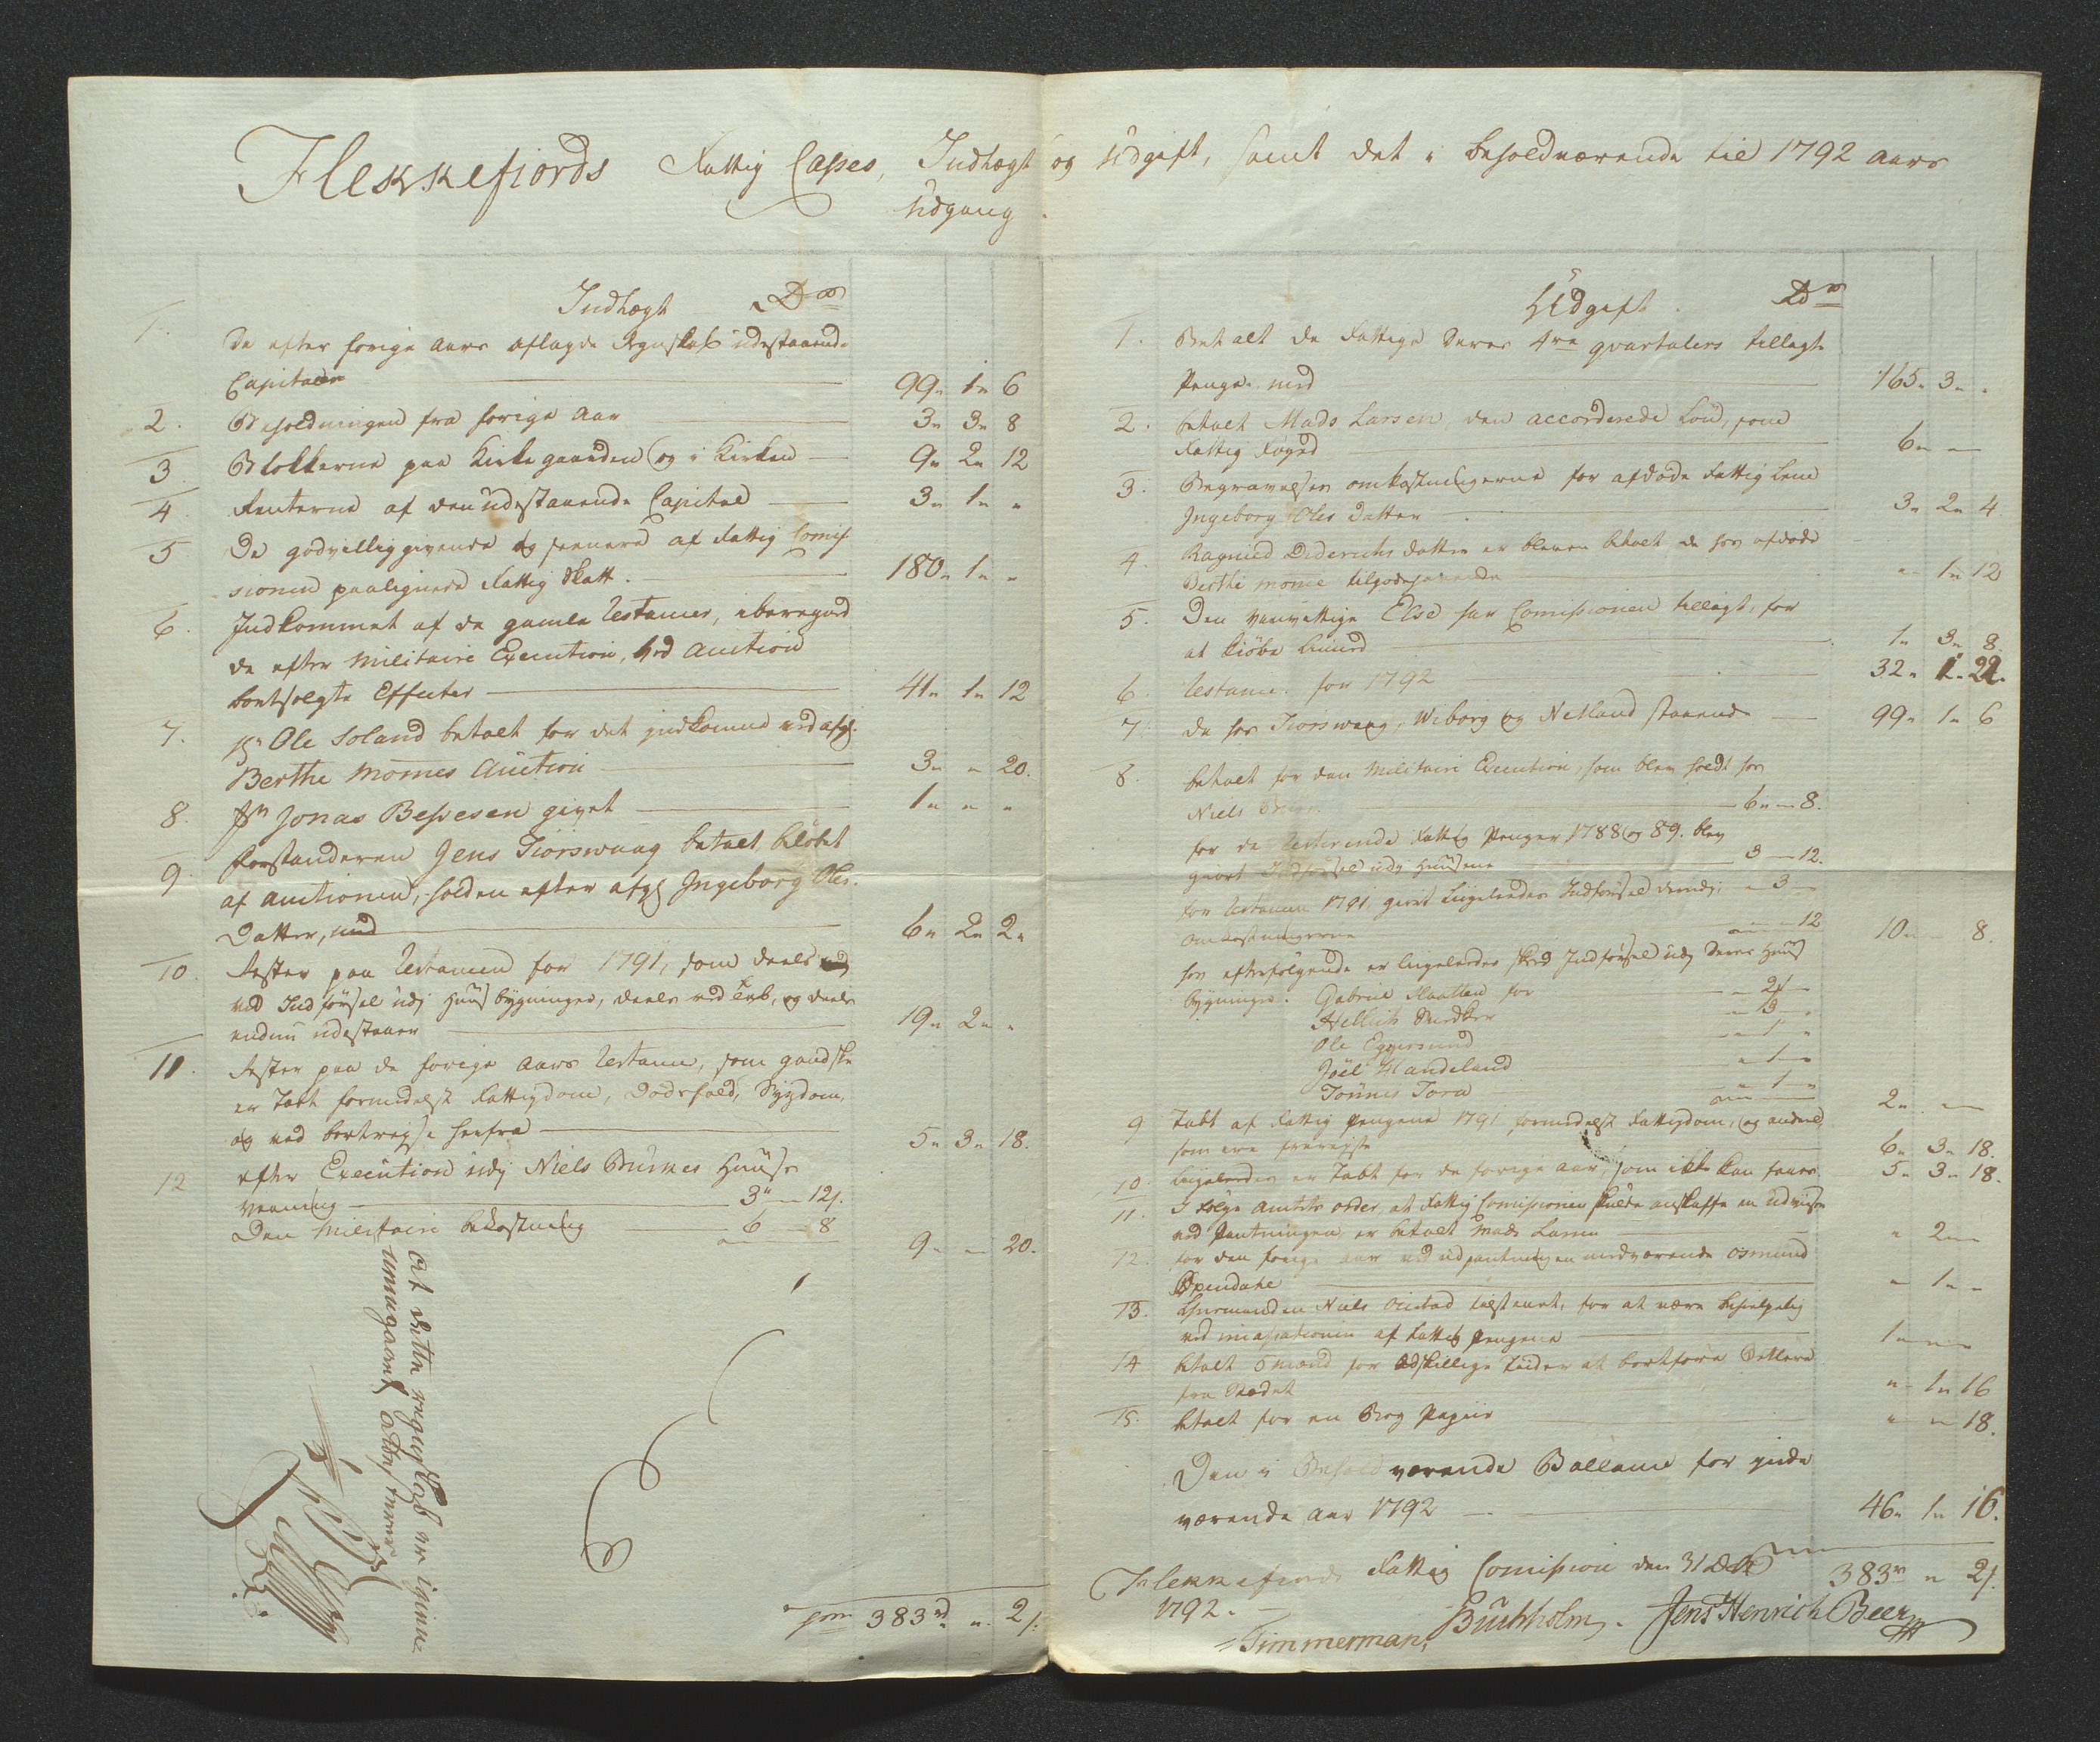 Flekkefiords Fattig Casses, Indtægt og Udgift, samt det i behold værende til 1792 aars
Udgang
Indtægt Dr
1. De efter forige aars aflagde Regnskab udestaaende
Capitaler 99 " 1 " 6
2. Beholdningen fra forige Aar 3 " 3 " 8
3. Blokkerne paa Kirkegaarden og i Kirken 9 " 2 " 12
4. Renterne af den udestaaende Capital 3 " 1 " "
5. De godvillig givende og af Fattig Comis
sionen paalignede Fattig Skatt. 180 " 1 " "
6. Indkommet af de gamle Restancer, iberegned
de efter Militaire Execution, ved Auction
bortsolgte Effecter 41 " 1 " 12
7. Sr Ole Soland betalt for det indkomne ved afg.
Berthe Mones Auction 3 " " 20.
8. Sr Jonas Bessesen givet 1 " " "
9. Forstanderen Jens Tiorswaag betalt beløbet
af auctionen, holden efter afg Ingeborg Oles
Datter, med 6 " 2 " 2 "
10. Rester paa Restancen for 1791, som deels
ved Indførsel udj Huus bygninger, deels ved Tab, og deels
endnu udestaaer 19 " 2 " "
11. Rester paa de forige Aars Restancer, som gandske
er tabt formedelst Fattigdom, Dødsfald, Sygdom,
og ved bortreyse herfra 5 " 3 " 18.
12 efter Execution udj Niels Huuse
vaaning 3 " 12 s.
Den Militaire bekostning 6 " 8 9 " " 20.
Sum 383 rd " 2 s.
at dette regnskab er igien=
nemgaaet
Udgift. Rdr
1. Betalt de Fattige deres 4re qvartalers tillagte
Penge med 165 " 3 " "
2. betalt Mads Larsen, den accorderede Løn, som
Fattig Foged 6 " "
3. Begravelses omkostningerne for afdøde Fattig Lem
Ingeborg Oles Datter 3 " 2 " 4.
4. Ragnild Diderichs Datter er bleven betalt de hos afdøde
Berthe Mone tilgodehavende " 1 " 12
5. Den vanvittige Else har Comissionen tillagt, for
at kiøbe 1 " 3 " 8.
6 Restance for 1792 32 " 1 " 22.
7. de hos Tiorswaag, Wiborg og Netland staaende 99 " 1 " 6
8. betalt for den Militaire Execution, som blev holdt hos
Niels 6 " " 8.
for de Resterende Fattig Penger 1788 og 89. blev
giort Indførsel udj Huusene 3 " 12.
for Restancen 1791, giort ligeledes Indførsel " 3 "
omkostningerne " 12 10 " 8.
hos efterfølgende er ligeledes skeed Indførsel udj deres Huus
bygninger. Gabriel for " 2 s
" 3 "
Ole Eggersund " 1 "
Joel Mandeland " 1 "
Tønnes Tora " 1 " 2 "
9 Tabt af Fattig Pengene 1791 formedelst Fattigdom, og andre
som ere 6 " 3 " 18.
10. ligeledes er tabt for de forige aar, som ikke kan faaes 5 " 3 " 18.
11. I Følge Amtets order, at Fattig Comissionen skulde anskaffe en
ved Pantningen, er betalt Mads Larsen " 2 "
12. for den forige aar ved udpantningen nærværende Osmund
" 1 "
13. Niels tilstaaet, for at være behielpelig
ved af Fattig Pengene 1 " "
14 betalt 5 mænd for adskillige tider at bortføre Betlere
fra Stædet " 1 " 16
15. betalt for en Bog Papiir " " 18.
Den i Behold værende Ballance for inde
værende aar 1792 46 " 1 " 16.
Flekkefiords Fattig Comission den 31 Dec 383 rd " 2 s.
1792.
Timmerman, Buchholm. Jens Henrich Beer